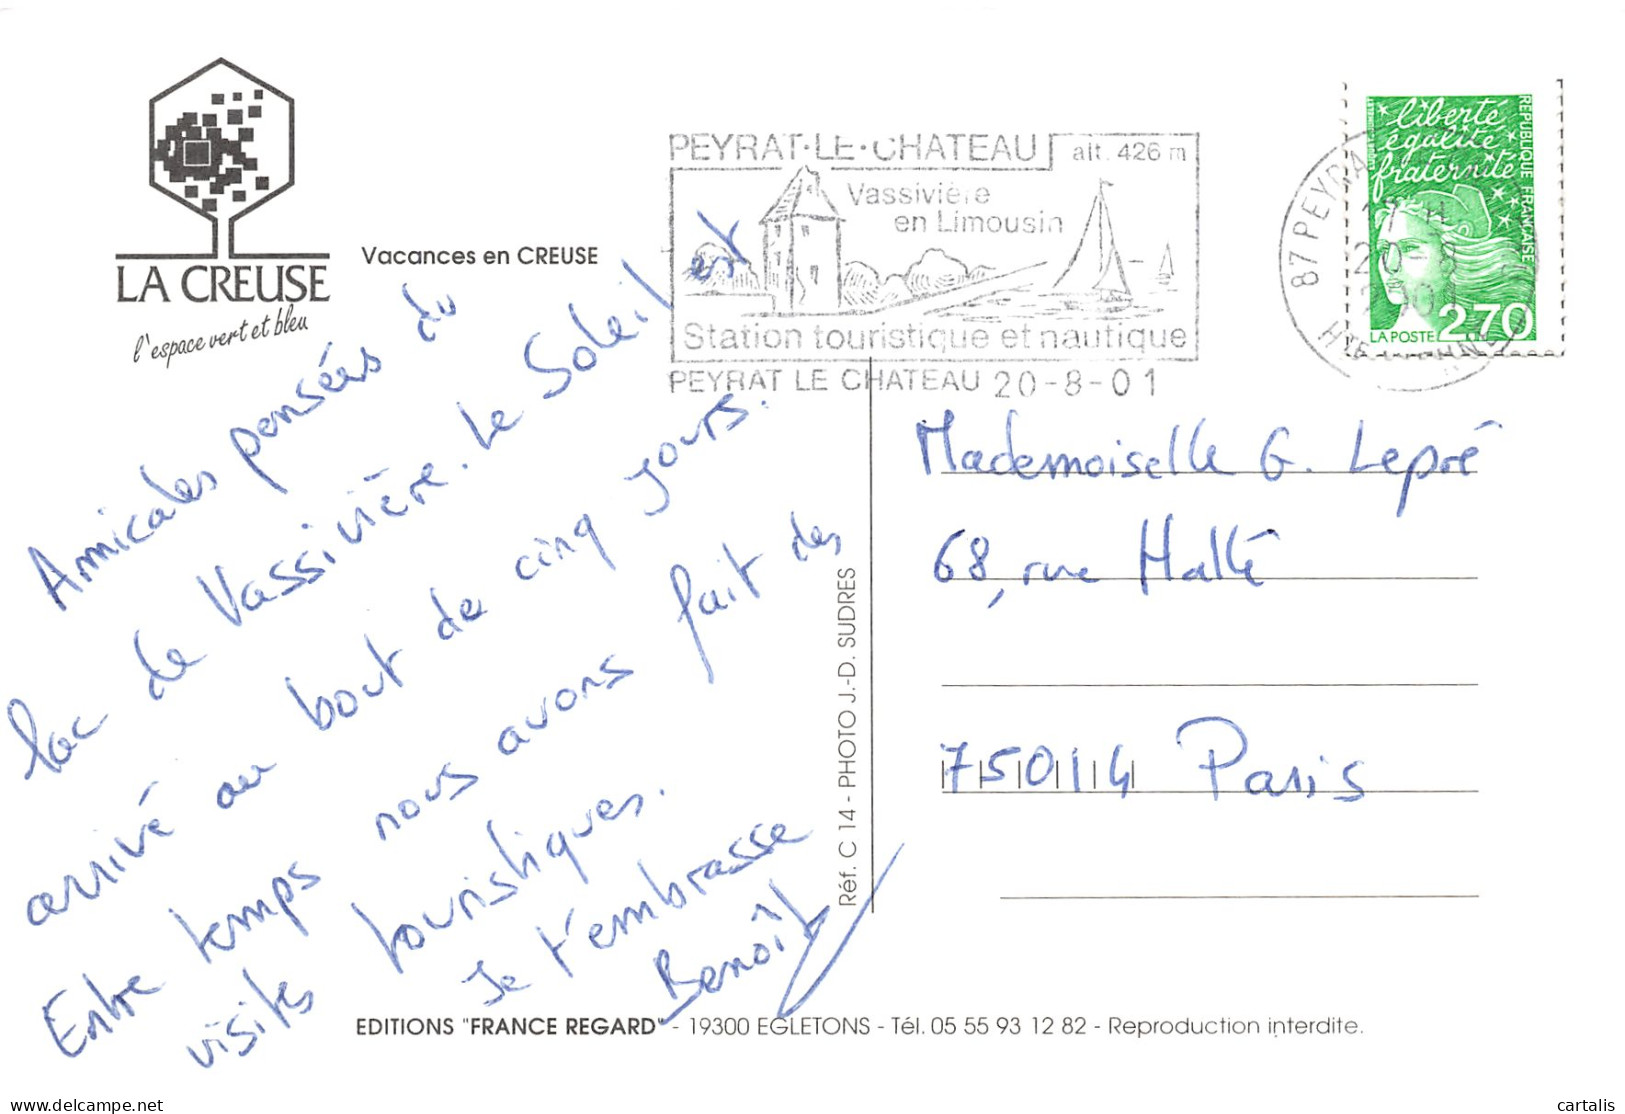 LA CREUSE
l'espace vert et bleu
Vacances en CREUSE
PEYRAT·LE·CHATEAU alt. 426 m
Vassivière
en Limousin
Station touristique et nautique
PEYRAT LE CHATEAU 20-8-01
87 PEYRA
17 H
20-
2001
HTE
liberté
égalité
fraternité
REPUBLIQUE FRANÇAISE
LA POSTE 2,70
Amicales pensées du
lac de Vassivière. Le Soleil est
arrivé au bout de cinq jours.
Entre temps nous avons fait des
visites touristiques.
Je t'embrasse
Benoît
Mademoiselle G. Lepré
68, rue Hallé
75014 Paris
Réf. C 14 - PHOTO J.-D. SUDRES
EDITIONS "FRANCE REGARD" - 19300 EGLETONS - Tél. 05 55 93 12 82 - Reproduction interdite.
delcampe.net
cartalis